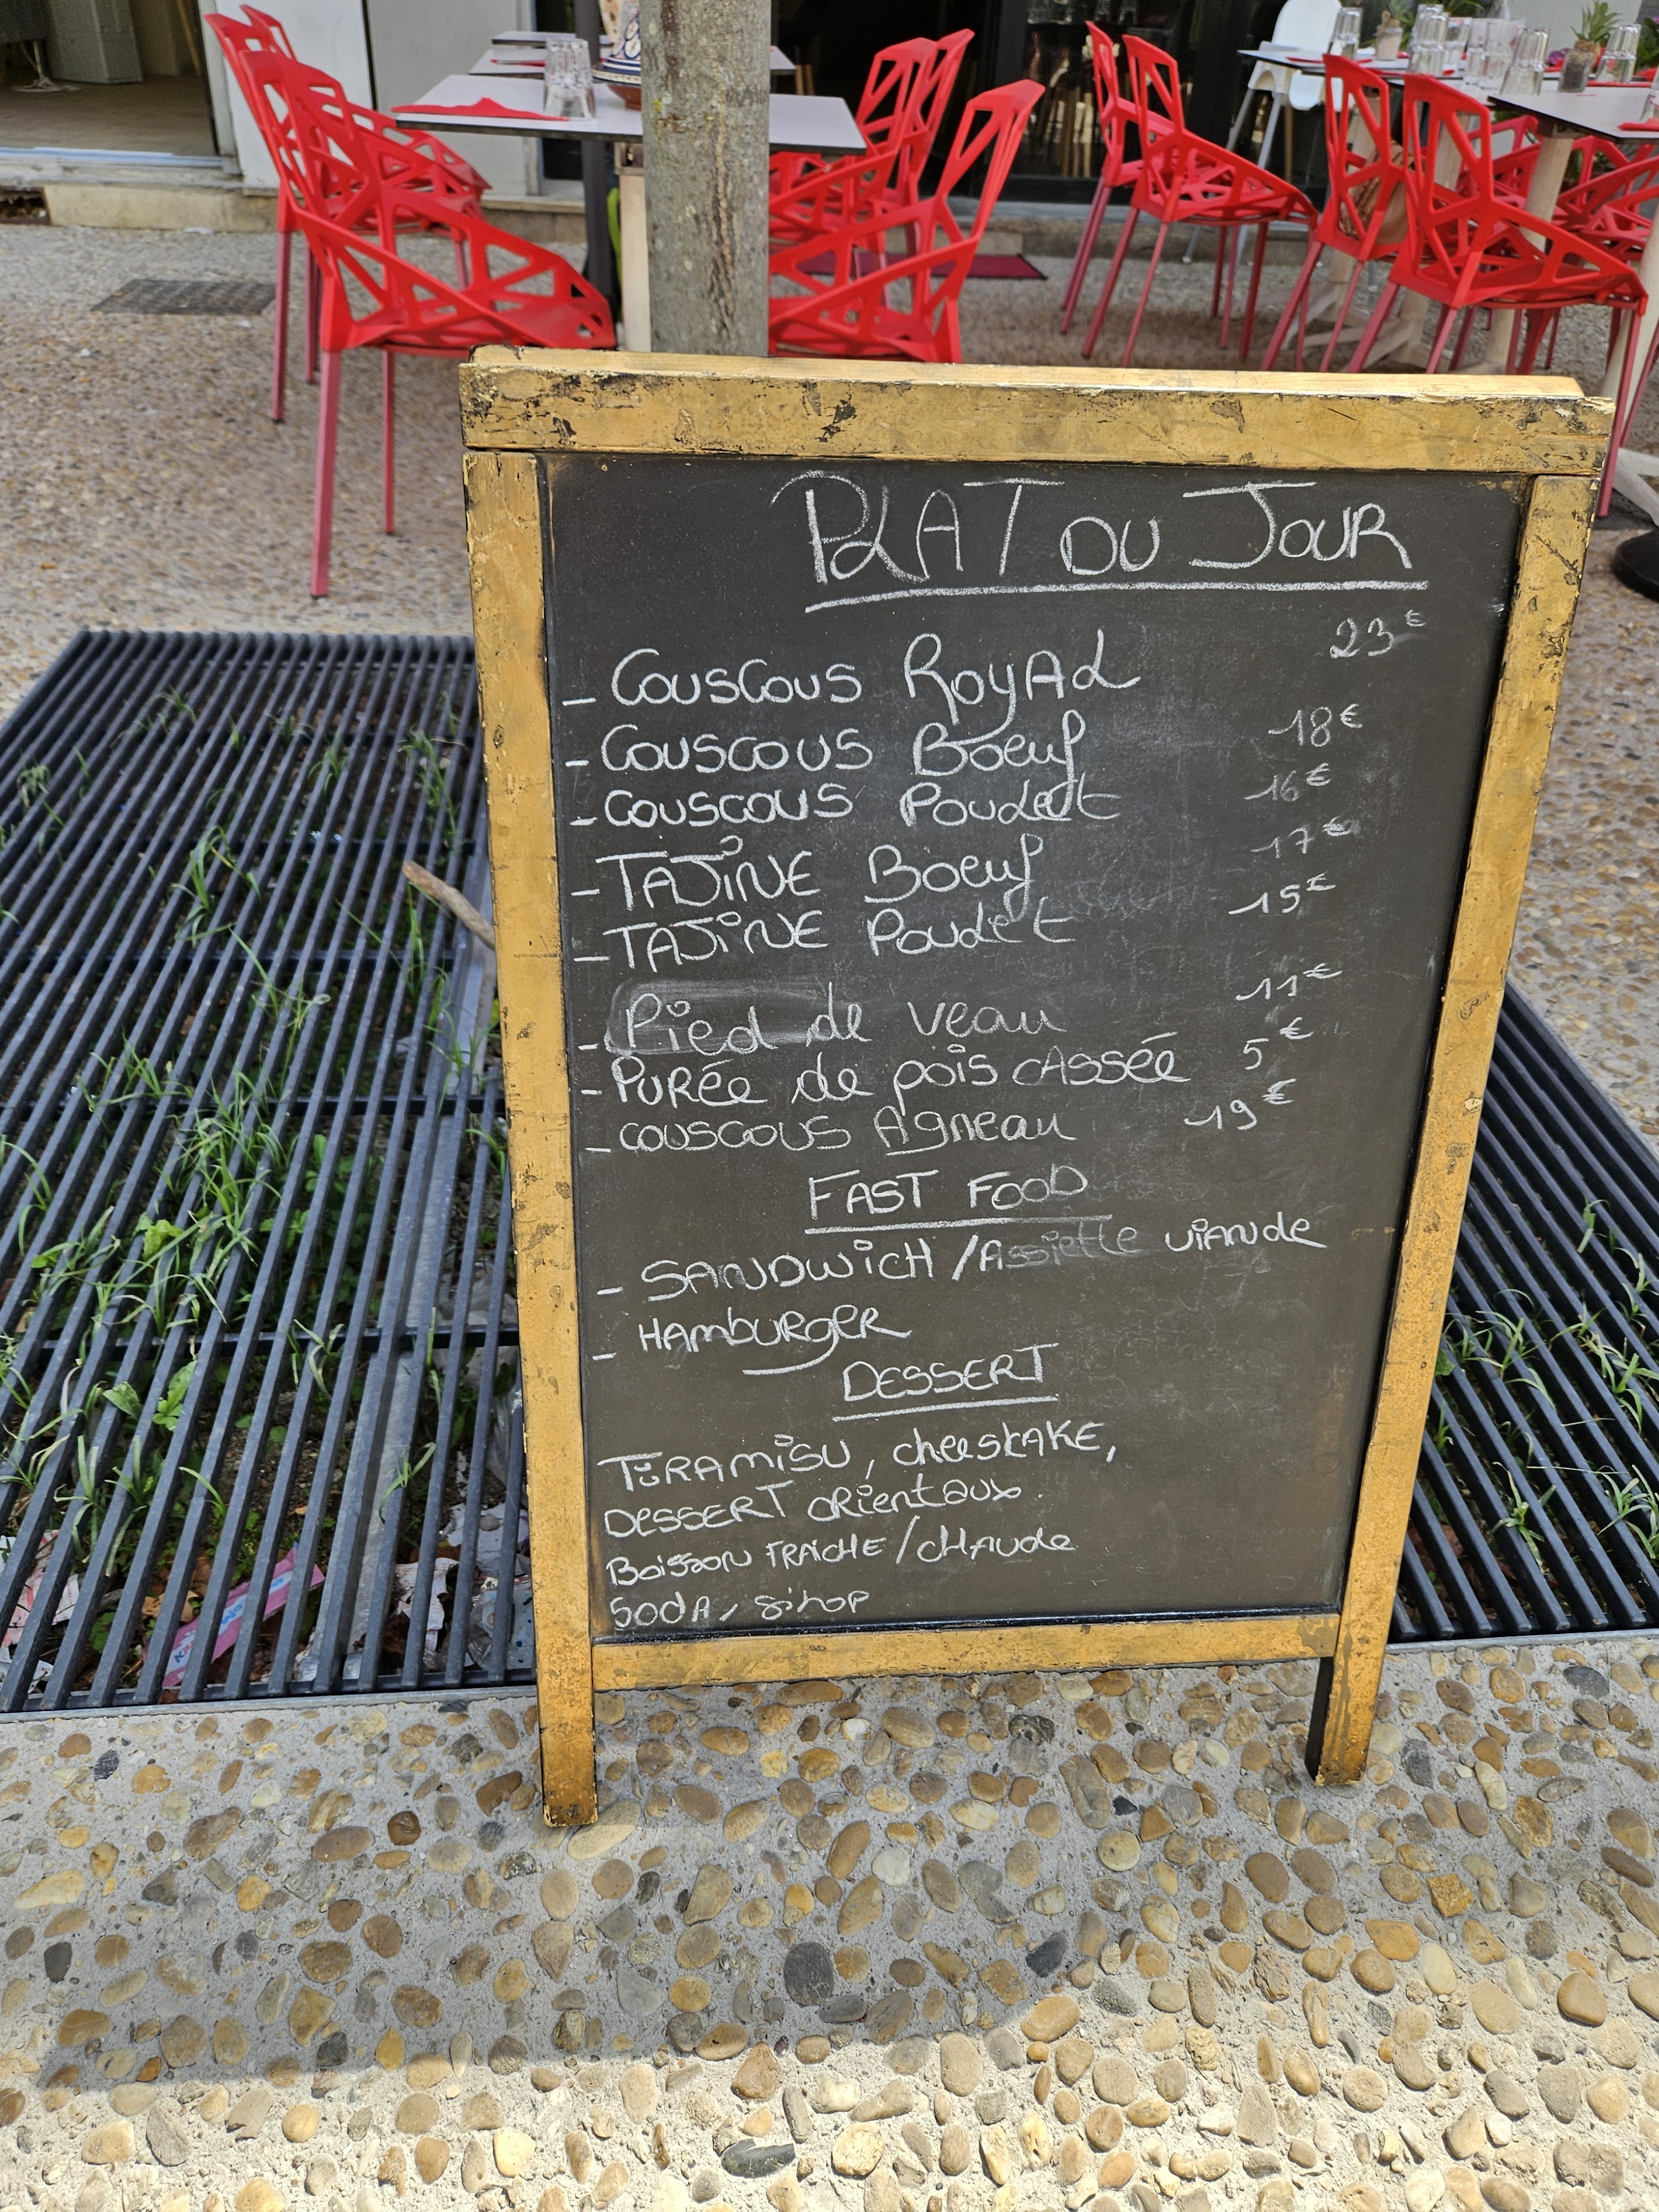 PLAT DU JOUR
- COUSCOUS ROYAL 23€
- COUSCOUS Boeuf 18€
- COUSCOUS POULET 16€
- TAJINE Boeuf 17€
- TAJINE Poulet 15€
- Pied de veau 11€
- PURÉE de pois cassée 5€
- couscous Agneau 19€
FAST FOOD
- SANDWICH / Assiette viande
- HAMBURGER
DESSERT
TIRAMISU, cheeskAKE,
DESSERT ORIENTAUX.
BOISSON FRAICHE / CHAUDE
SODA, sirop